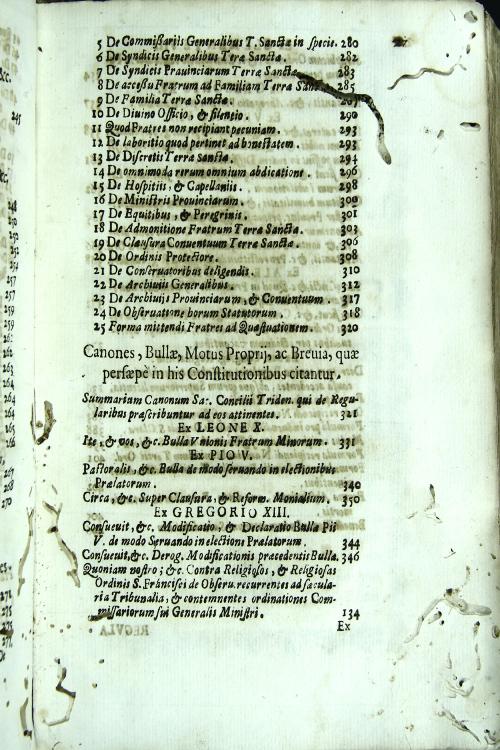 5 De Commißariis Generalibus T. Sanctæ in specie. 280
6 De Syndicis Generalibus Teræ Sanctæ. 282
7 De Syndicis Prauinciarum Terræ Sanctæ 283
8 De acceßu Fratrum ad Familiam Terræ Sanctæ 285
9 De Familia Terræ Sanctæ.
10 De Diuino Officio, & silentio. 290
11 Quod Fratres non recipiant pecuniam. 293
12 De laboritio quod pertinet ad honestatem. 293
13 De Discretis Terræ sanctæ. 294
14 De omnimoda rerum omnium abdicatione. 296
15 De Hospitiis, & Capellaniis. 298
16 De Ministris Prouinciarum. 300
17 De Equitibus, & Peregrinis. 301
18 De Admonitione Fratrum Terræ Sanctæ. 303
19 De Clausura Conuentuum Terræ Sanctæ. 306
20 De Ordinis Protectore. 308
21 De Conseruatoribus deligendis. 310
22 De Archiuiis Generalibus. 312
23 De Archiuijs Prouinciarum, & Conuentuum. 317
24 De Obseruatione horum Statutorum. 318
25 Forma mittendi Fratres ad Quæstuationem. 320
Canones, Bullæ, Motus Proprij, ac Breuia, quæ
persæpè in his Constitutionibus citantur.
Summarium Canonum Sac. Concilii Triden. qui de Regu-
laribus præscribuntur ad eos attinentes. 321
Ex LEONE X.
Ite, & vos, &c. Bulla Vnionis Fratrum Minorum. 331
Ex PIO V.
Pastoralis, &c. Bulla de modo seruando in electionibus
Prælatorum. 340
Circa, &c. Super Clausura, & Reform. Monialium. 350
Ex GREGORIO XIII.
Consueuit, &c. Modificatio, & Declaratio Bullæ Pii
V. de modo Seruando in electione Prælatorum. 344
Consueuit, &c. Derog. Modificationis præcedentis Bullæ. 346
Quoniam nostro; &c. Contra Religiosos, & Religiosas
Ordinis S. Francisci de Obseru. recurrentes ad sæcula-
ria Tribunalia, & contemnentes ordinationes Com-
missariorum sui Generalis Ministri. 134
Ex